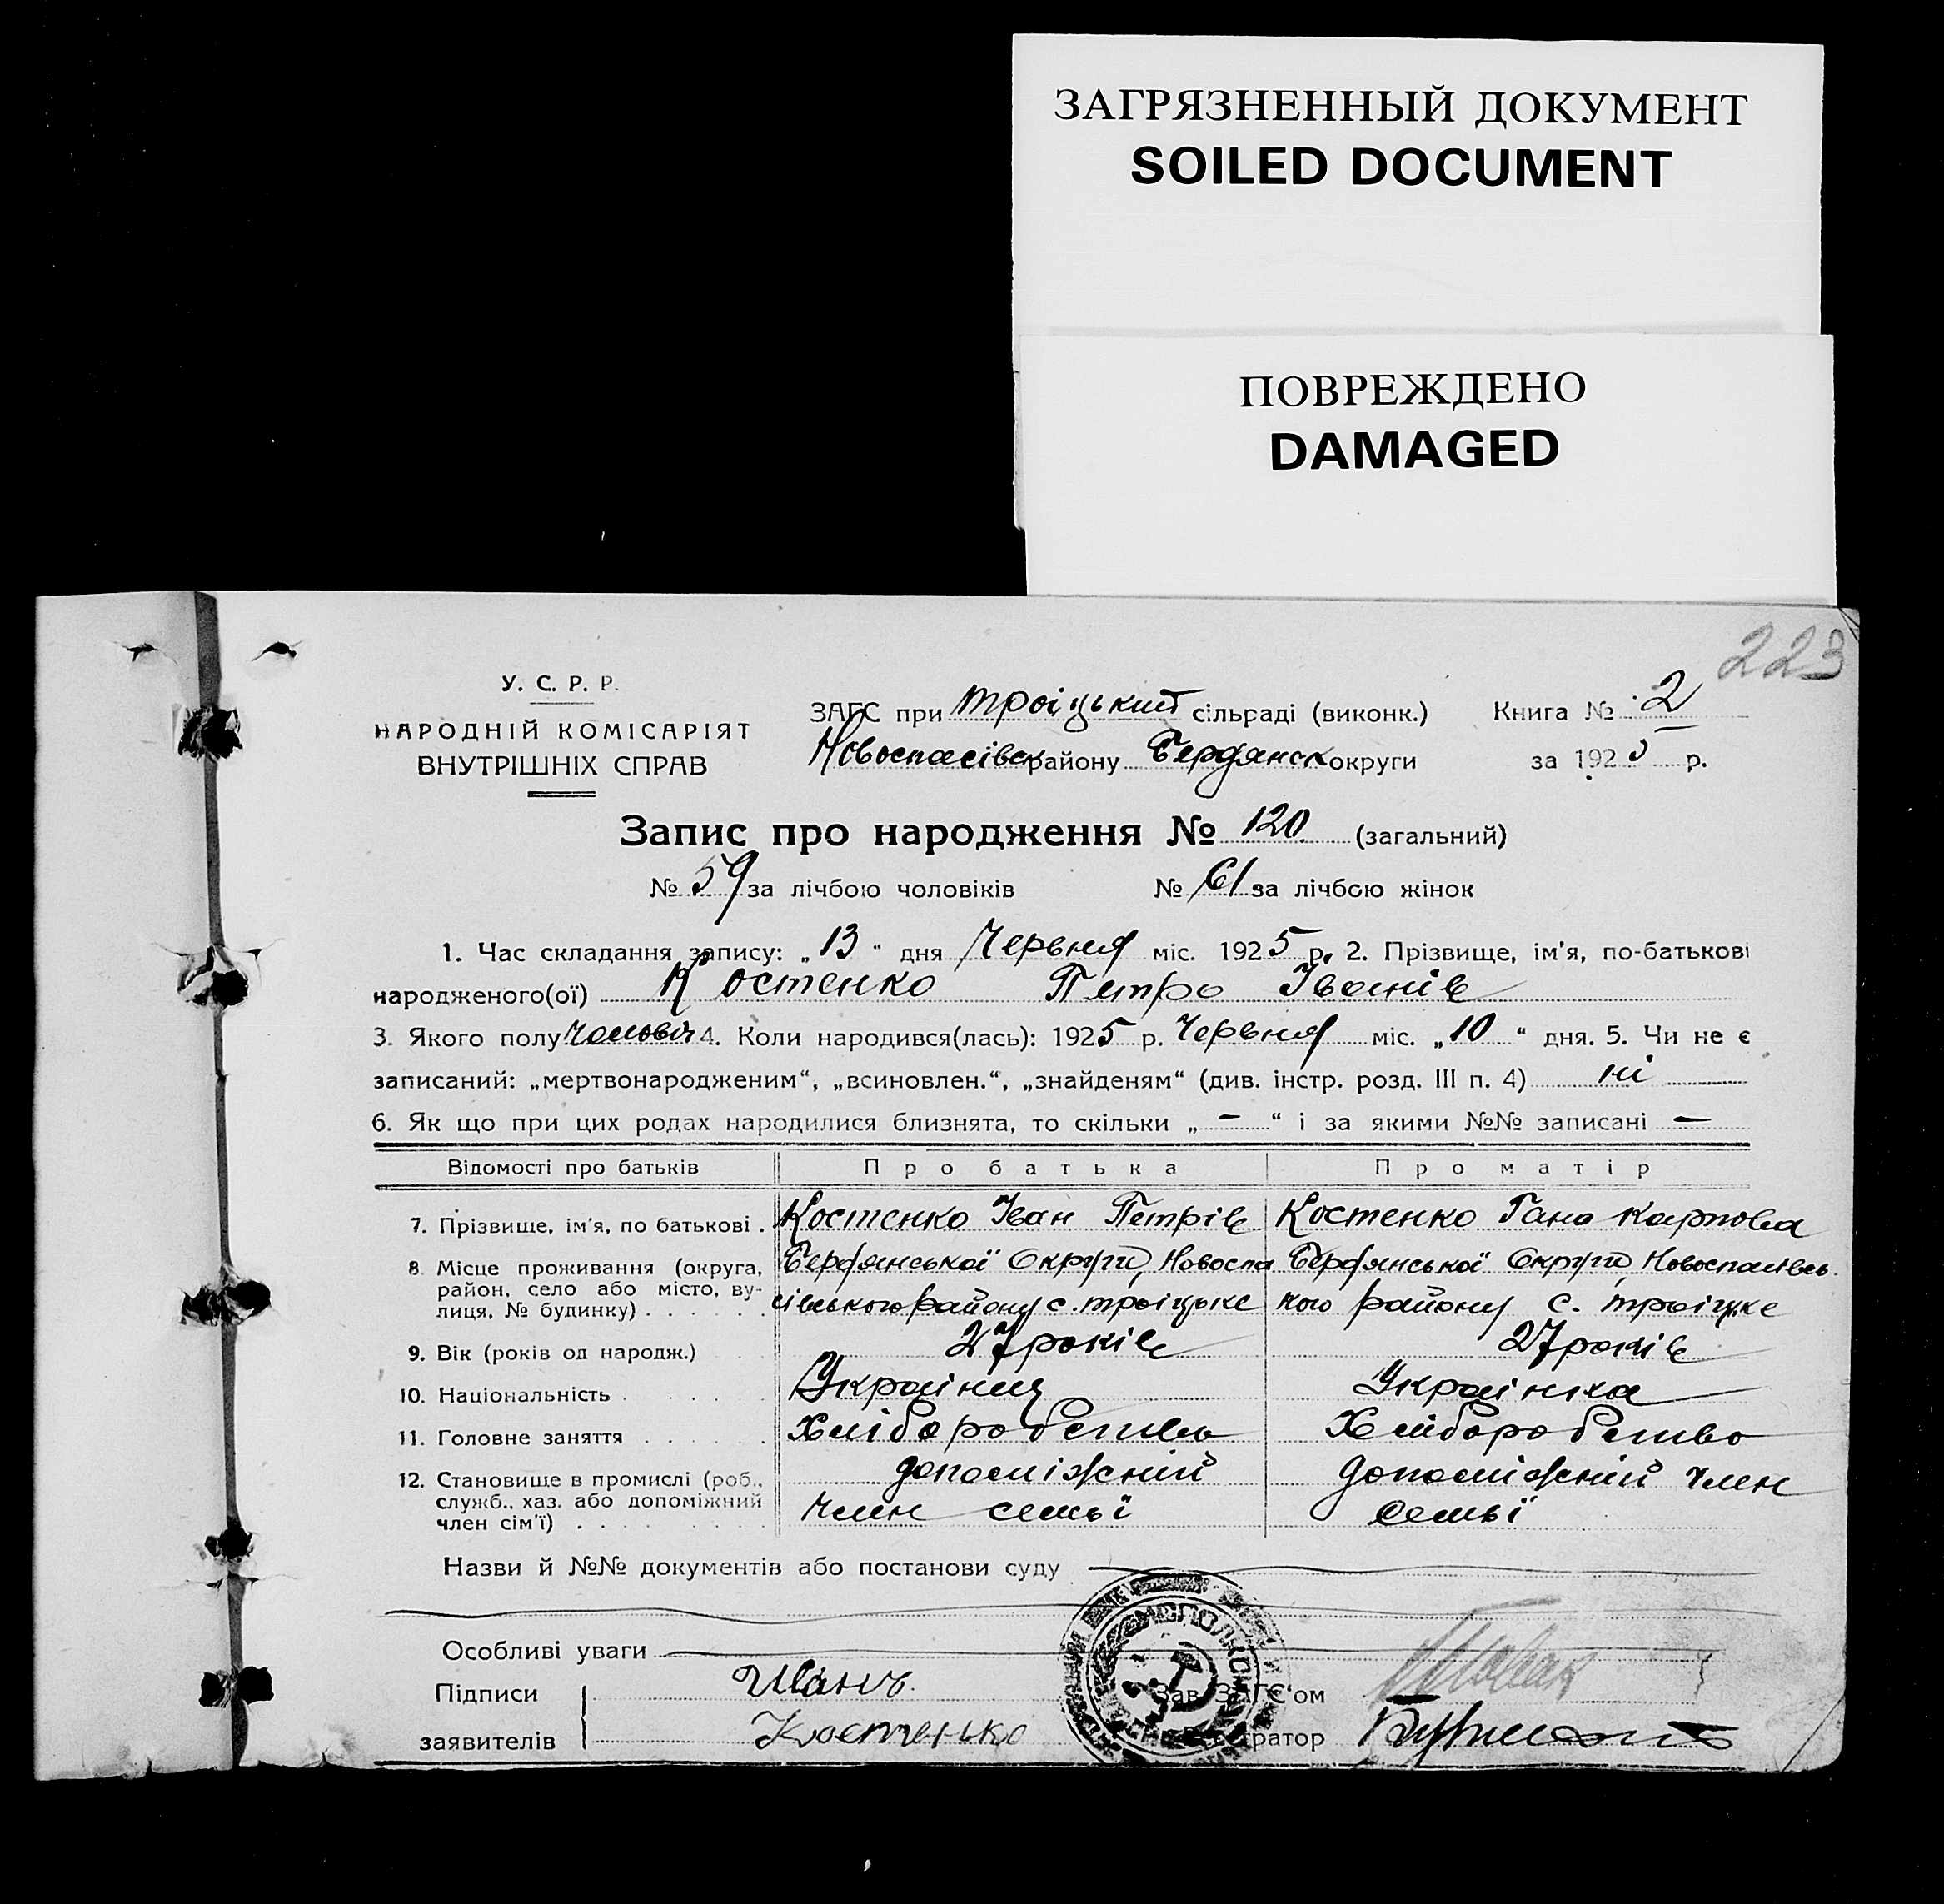 ЗАГРЯЗНЕННЫЙ ДОКУМЕНТ
SOILED DOCUMENT
ПОВРЕЖДЕНО
DAMAGED
223
У. С. Р. Р.
НАРОДНІЙ КОМІСАРІЯТ
ВНУТРІШНІХ СПРАВ
ЗАГС при Троіцький сільраді (виконк.) Книга № 2
Новоспасівськ району Бердянськ округи за 1925 р.
Запис про народження № 120 (загальний)
№ 59 за лічбою чоловіків № 61 за лічбою жінок
1. Час складання запису: „13“ дня Червня міс. 1925 р. 2. Прізвище, ім'я, по-батькові
народженого(ої) Костенко Петро Іванів
3. Якого полу Чоловіч 4. Коли народився(лась): 1925 р. Червня міс. „10“ дня. 5. Чи не є
записаний: „мертвонародженим“, „всиновлен.“, „знайденям“ (див. інстр. розд. III п. 4) ні
6. Як що при цих родах народилися близнята, то скільки „—“ і за якими №№ записані —
Відомості про батьків Про батька Про матір
7. Прізвище, ім'я, по батькові . Костенко Іван Петрів Костенко Гана Карпова
8. Місце проживання (округа, Бердянської Округи, Новоспа Бердянської Округи, Новоспасівсь
район, село або місто, ву-
лиця, № будинку) . . . . . сівського району с. Троіцьке кого району с. Троіцьке
9. Вік (років од народж.) 27 років 27 років
10. Національність . . . . Украінец Украінка
11. Головне заняття . . . . . Хліборобство Хліборобство
12. Становище в промислі (роб., допоміжний допоміжний член
служб., хаз. або допоміжний
член сім'ї) . . . . . . . член семьї семьї
Назви й №№ документів або постанови суду
Особливі уваги
Підписи Иванъ Зав. ЗАГС'ом
заявителів Костенко Реєстратор